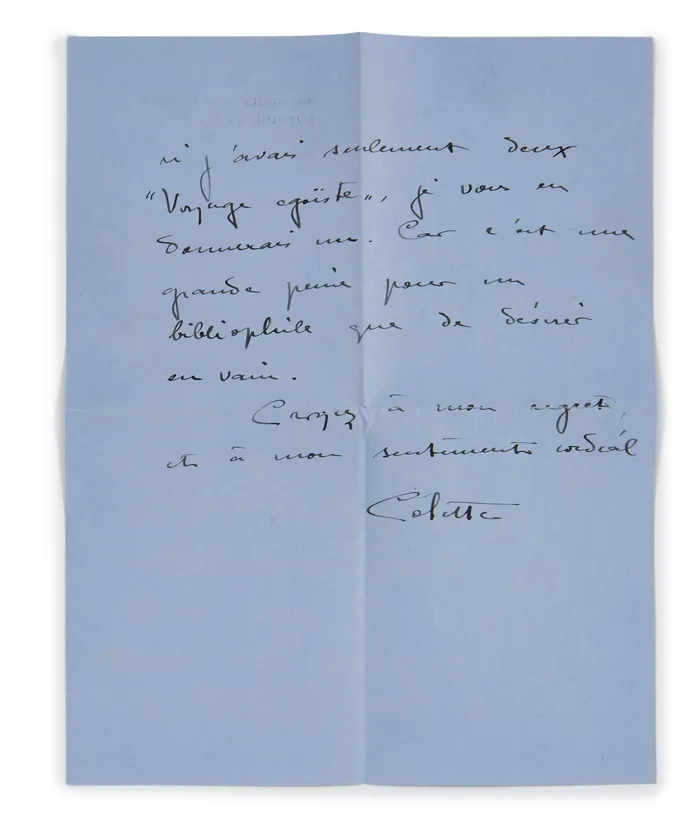 si j'avais seulement deux
"Voyage egoïste", je vous en
donnerais un. Car c'est une
grande peine pour un
bibliophile que de désirer
en vain.
Croyez à mon regret,
et à mon sentiment cordial
Colette